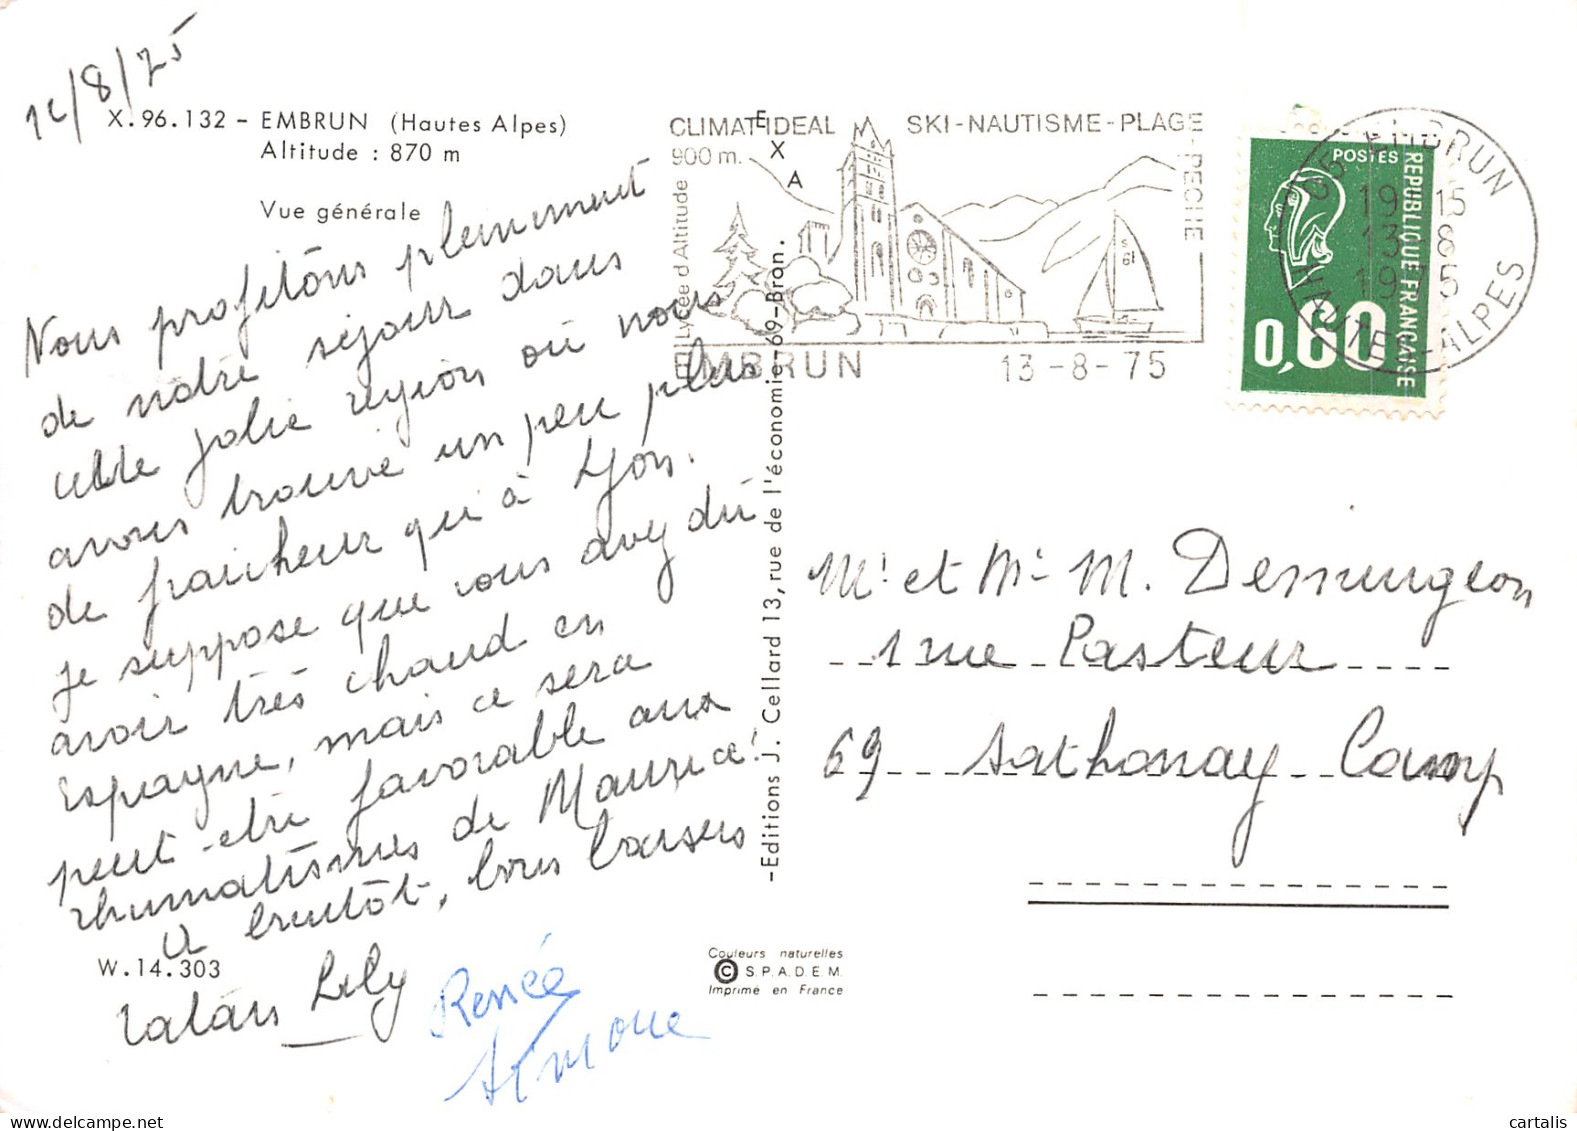 12/8/75
X.96.132 - EMBRUN (Hautes Alpes)
Altitude : 870 m
Vue générale
Nous profitons pleinement
de notre séjour dans
cette jolie région où nous
avons trouvé un peu plus
de fraicheur qu'à Lyon.
je suppose que vous avez dû
avoir très chaud en
Espagne, mais ce sera
peut-être favorable aux
rhumatismes de Maurice!
A bientôt, bons baisers
Lily
Renée
Simone
W.14.303
CLIMAT IDEAL
900 m.
SKI-NAUTISME-PLAGE-PECHE
Lycée d'Altitude
EMBRUN 13-8-75
E
X
A
S
61
POSTES
REPUBLIQUE FRANÇAISE
0,60
05 EMBRUN
19 H15
13-8
1975
HAUTES-ALPES
-Editions J. Cellard 13, rue de l'économie-69-Bron.
Mr et Me M. Dessungeon
1 rue Pasteur
69 Sathonay Camp
Couleurs naturelles
© S.P.A.D.E.M.
Imprimé en France
cartalis